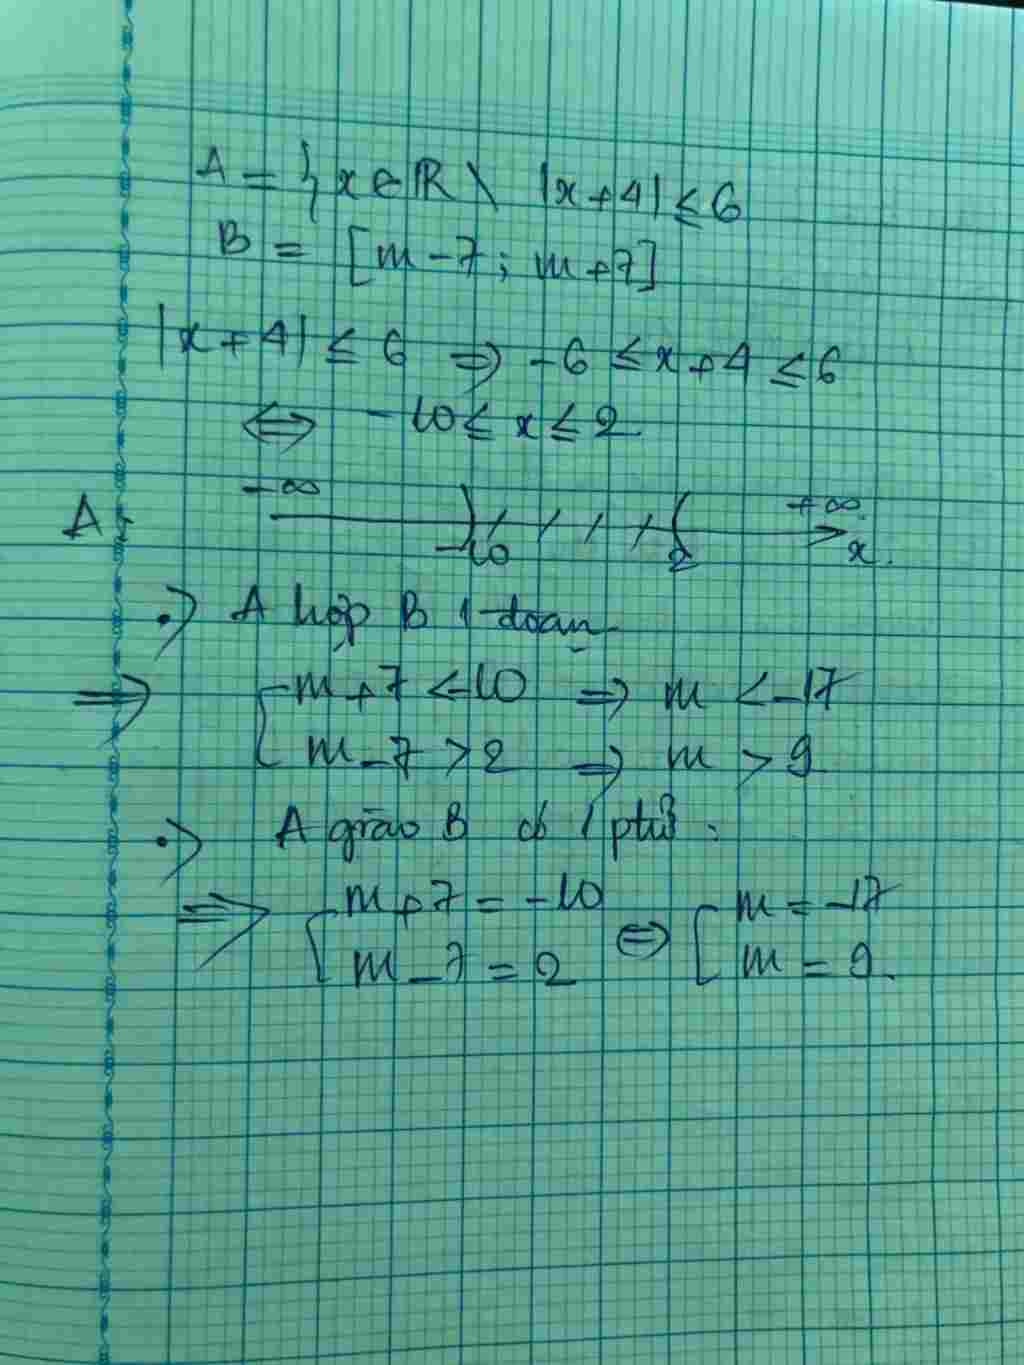 A = { x ∈ ℝ \ |x + 4| ≤ 6
B = [m - 7 ; m + 7]
|x + 4| ≤ 6 ⇒ -6 ≤ x + 4 ≤ 6
⇔ -10 ≤ x ≤ 2
-∞ +∞
A:
-10 2 x
•) A hợp B 1 đoạn
⇒ [ m + 7 < -10 ⇒ m < -17
m - 7 > 2 ⇒ m > 9
•) A giao B có 1 ptử :
⇒ [ m + 7 = -10 ⇔ [ m = -17
m - 7 = 2 m = 9.